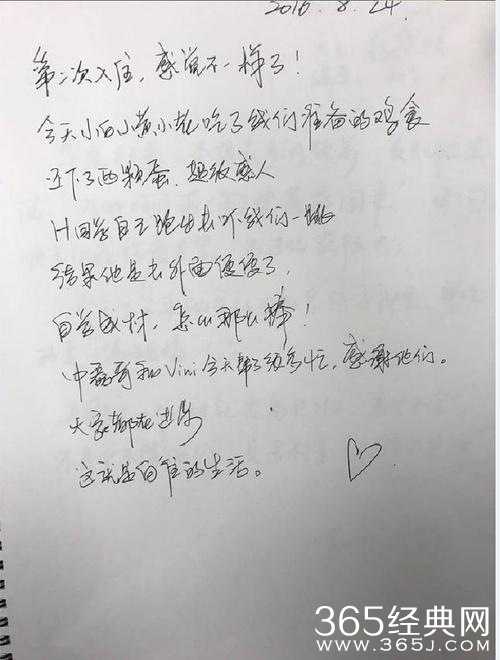 2016.8.24.
第二次入住，感觉不一样了！
今天小白小黄小花吃了我们准备的鸡食
还下了两颗蛋，超级感人
H同学自己跑出去吓我们一跳
结果他是去外面便便了，
自学成材，怎么那么棒！
中磊哥和Vini今天帮了很多忙，感谢他们。
大家都在进步
这就是向往的生活。
365经典网
WWW.365J.COM